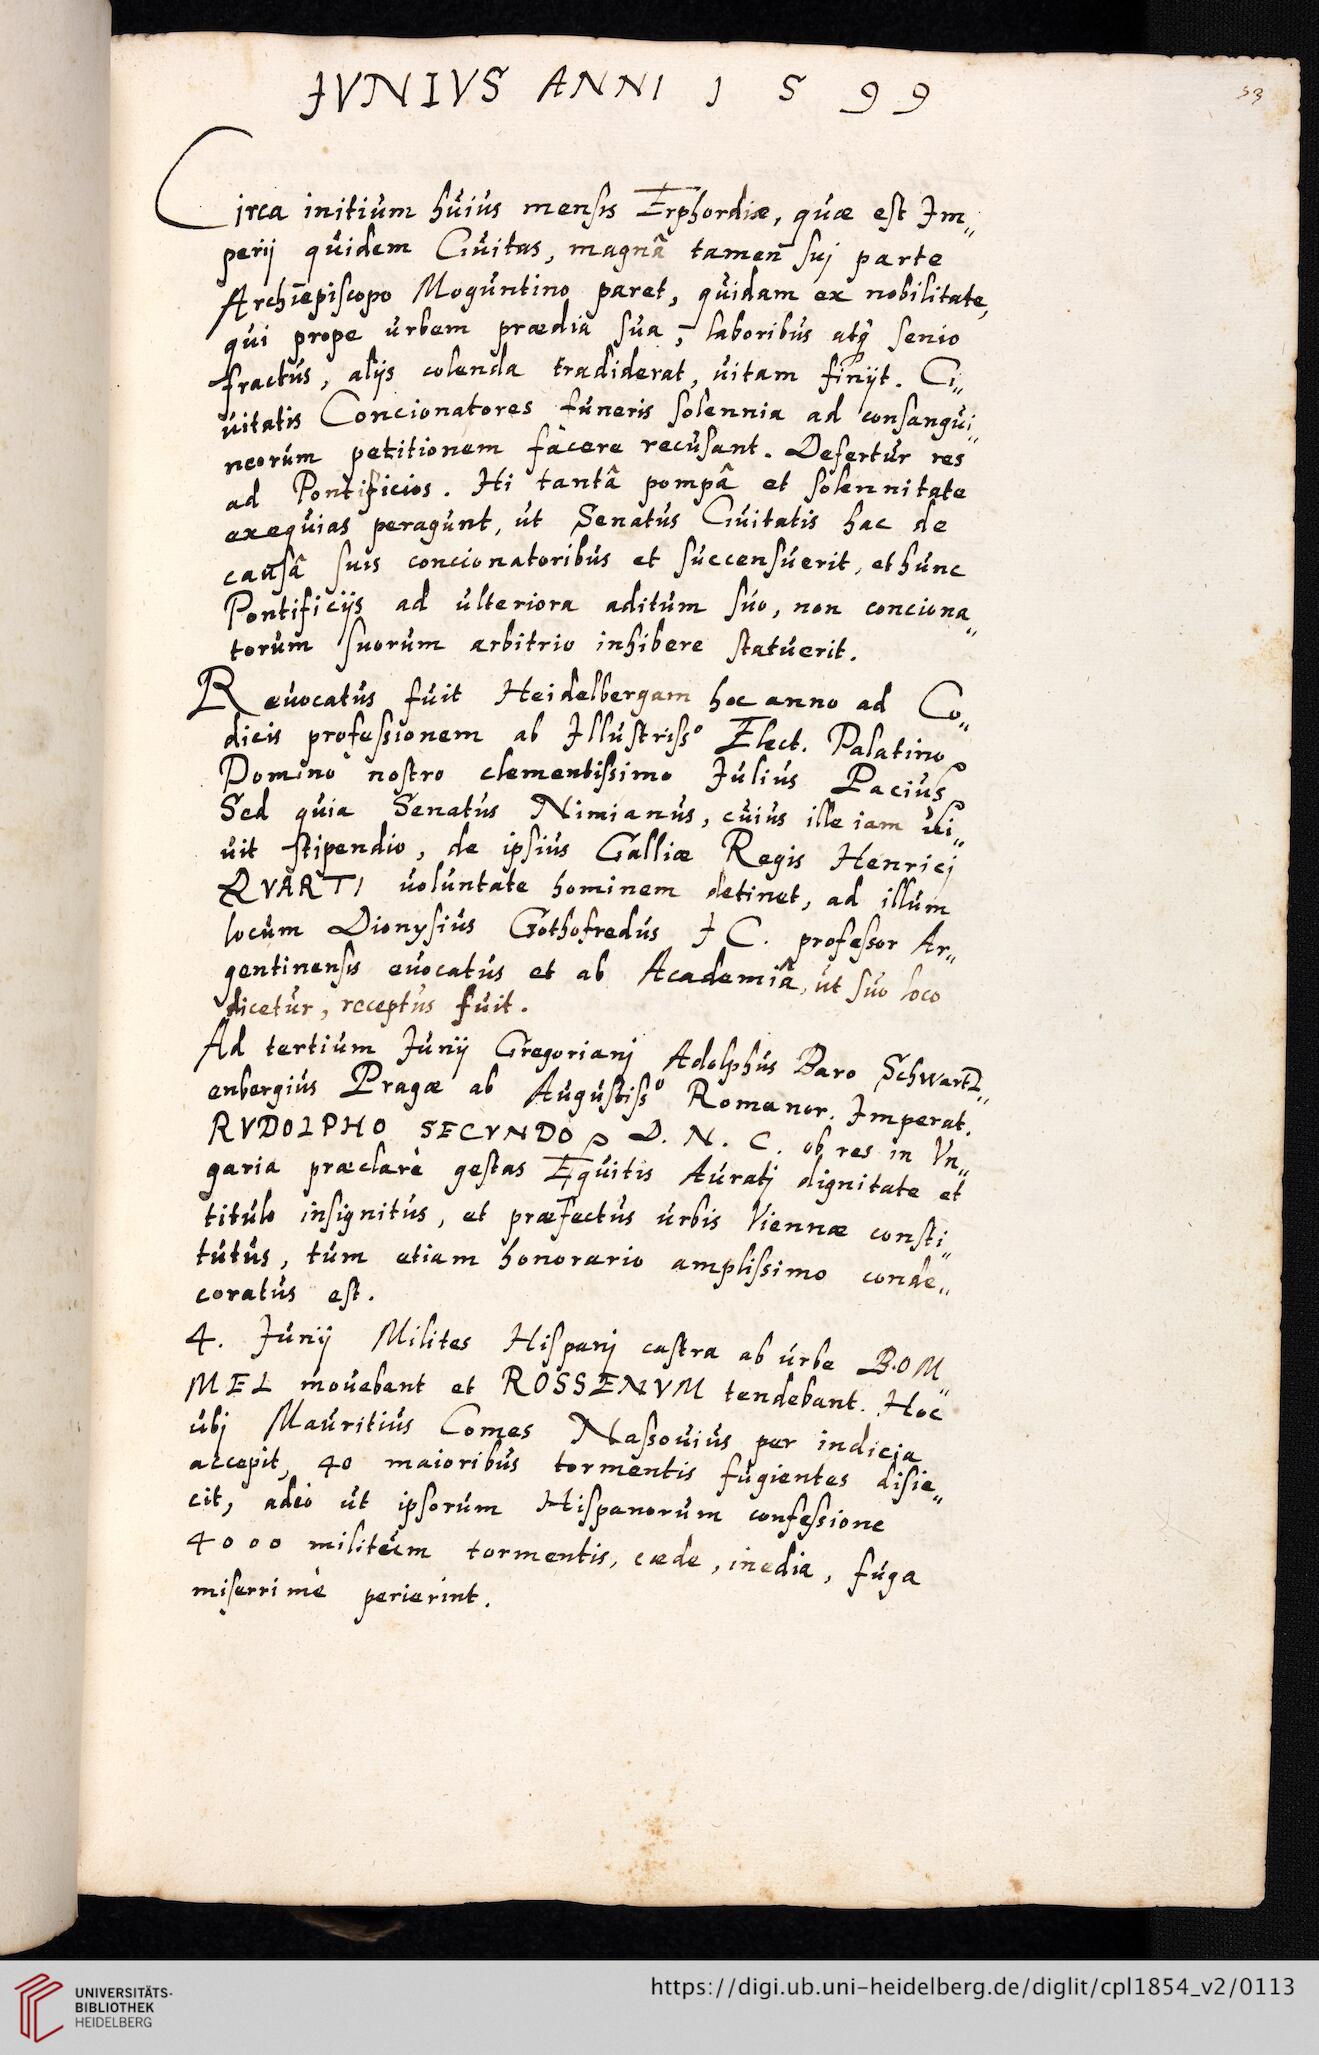 JVNIVS ANNI 1599
53
Circa initiúm húiús mensis Erphordiæ, qúæ est Im„
perij qúidem Ciúitas, magnâ tamen suj parte
Archiepiscopo Mogúntino paret, qúidam ex nobilitate,
qúi prope úrbem prædia súa, laboribús atq́ senio
fractús, alijs colenda tradiderat, úitam finijt. Ci„
úitatis Concionatores fúneris solennia ad consangúi„
neorúm petitionem facere recúsant. Defertúr res
ad Pontificios. Hi tantâ pompâ et solennitate
exeqúias peragúnt, út Senatús Ciúitatis hac de
caúsâ súis concionatoribús et súccensúerit, et húnc
Pontificijs ad últeriora aditúm súo, non conciona„
torúm súorúm arbitrio inhibere statúerit.
Reúocatús fúit Heidelbergam hoc anno ad Co„
dicis professionem ab Illústrissº Elect. Palatino
Domino nostro clementissimo Júliús Paciús
Sed qúia Senatús Nimianús, cúiús ille iam úi„
úit stipendio, de ipsiús Galliæ Regis Henricj
QVARTI úolúntate hominem detinet, ad illúm
locúm Dionysiús Gothofredús J C. professor Ar„
gentinensis eúocatús et ab Academiâ, út súo loco
dicetúr, receptús fúit.
Ad tertiúm Júnij Gregorianj Adolphús Baro Schwartz„
enbergiús Pragæ ab Aúgústissº Romanor. Imperat.
RVDOLPHO SECVNDO D. N. C. ob res in Vn„
garia præclarè gestas Eqúitis Aúratj dignitate et
titúlo insignitús, et præfectús úrbis Viennæ consti„
tútús, túm etiam honorario amplissimo conde„
coratús est.
4. Júnij Milites Hispanj castra ab úrbe BOM„
MEL moúebant et ROSSENVM tendebant. Hoc
úbj Maúritiús Comes Nassoúiús per indicia
accepit, 40 maioribús tormentis fúgientes disie„
cit, adeo út ipsorúm Hispanorúm confessione
4000 militúm tormentis, cæde, inedia, fúga
miserrimè perierint.
UNIVERSITÄTS-
BIBLIOTHEK
HEIDELBERG
https://digi.ub.uni-heidelberg.de/diglit/cpl1854_v2/0113